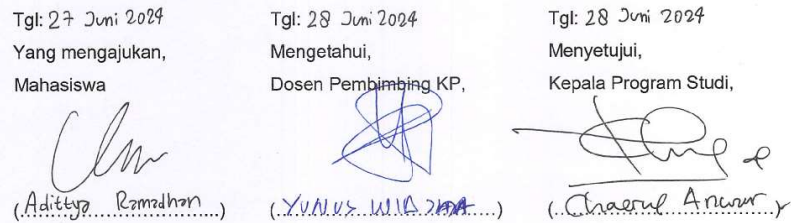 Tgl: 27 Juni 2024
Yang mengajukan,
Mahasiswa
(Adittya Ramadhan)
Tgl: 28 Juni 2024
Mengetahui,
Dosen Pembimbing KP,
(YUNUS WIDJAJA)
Tgl: 28 Juni 2024
Menyetujui,
Kepala Program Studi,
(Chaerul Anwar)